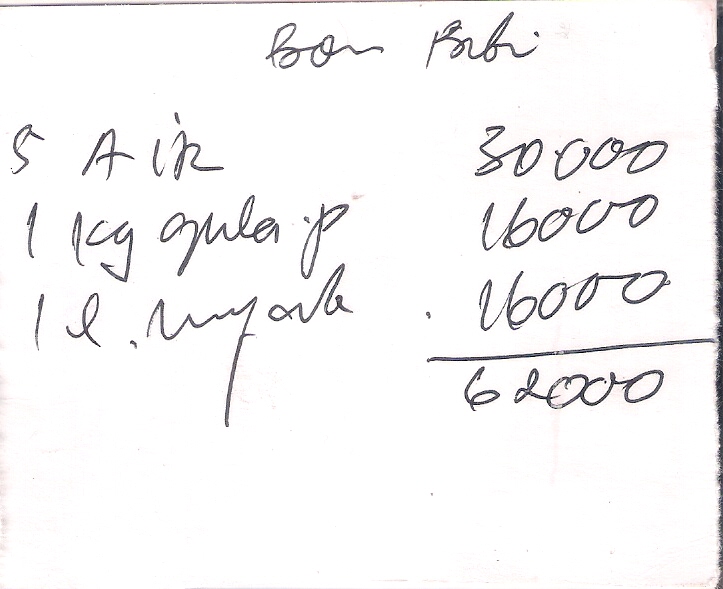 Bon Bibi
5 Air 30000
1 kg gula.p 16000
1 l. minyak. 16000
62000